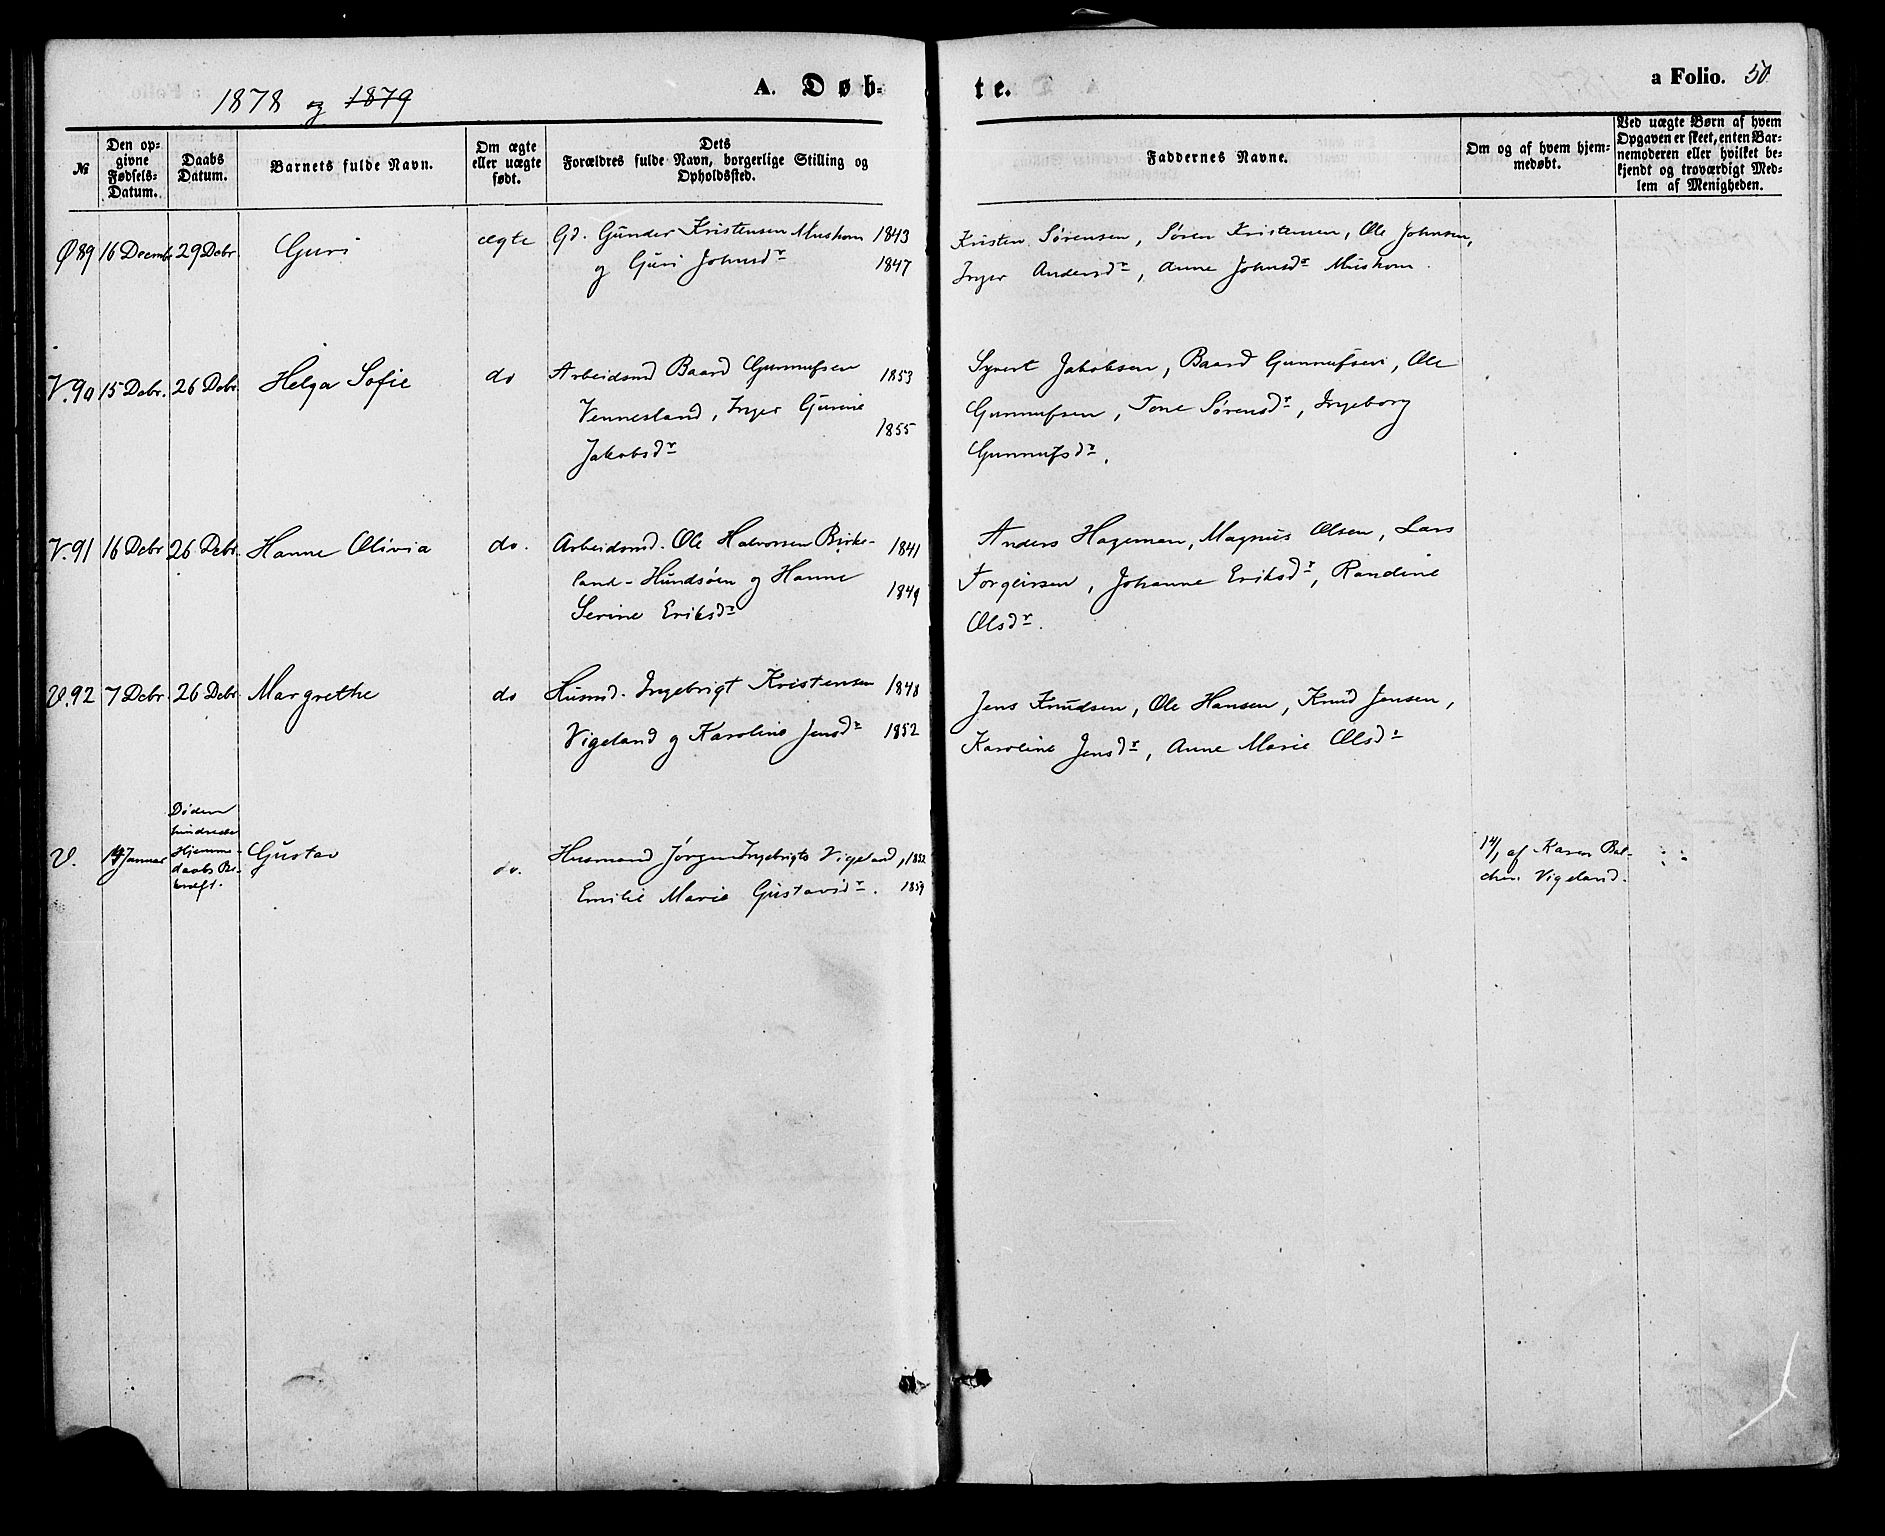 1878 og 1879
A. Døb-
te.
a Folio. 50
№
Den op-
givne
Fødsels-
Datum.
Daabs
Datum.
Barnets fulde Navn.
Om ægte
eller uægte
født.
Dets
Forældres fulde Navn, borgerlige Stilling og
Opholdssted.
Faddernes Navne.
Om og af hvem hjem-
medøbt.
Ved uægte Børn af hvem
Opgaven er skeet, enten Bar-
nemoderen eller hvilket be-
kjendt og troværdigt Med-
lem af Menigheden.
Ø89 16 Decemb 29 Debr Guri ægte Gd. Gunder Kristensen Mushom 1843
og Guri Johnsdr 1847
Kristen Sørensen, Søren Kristensen, Ole Johnsen,
Inger Andersdr, Anne Johnsdr Mushom.
V.90 15 Debr. 26 Debr. Helga Sofie do Arbeidsmd Baard Gunnufsen 1853
Vennesland, Inger Gurine 1855
Jakobsdr
Syvert Jakobsen, Baard Gunnufsen, Ole
Gunnufsen, Tone Sørensdr, Ingeborg
Gunnufsdr.
V.91 16 Debr 26 Debr. Hanne Olivia do. Arbeidsmd. Ole Halvorsen Birke- 1841
land-Hundsøen og Hanne 1849
Serine Eriksdr
Anders Hageman, Magnus Olsen, Lars
Torgeirsen, Johanne Eriksdr, Randine
Olsdr.
V.92 7 Debr. 26 Debr Margrethe do Husmd. Ingebrigt Kristensen 1848
Vigeland og Karoline Jensdr 1852
Jens Knudsen, Ole Hansen, Knud Jensen,
Karoline Jensdr, Anne Marie Olsdr
V. 14 Januar
Døden
hindrede
Hjemme-
daabs Be-
kræft.
Gustav do. Husmand Jørgen Ingebrigts Vigeland, 1852
Emilie Marie Gustavsdr. 1859
14/1 af Karen
Vigeland.